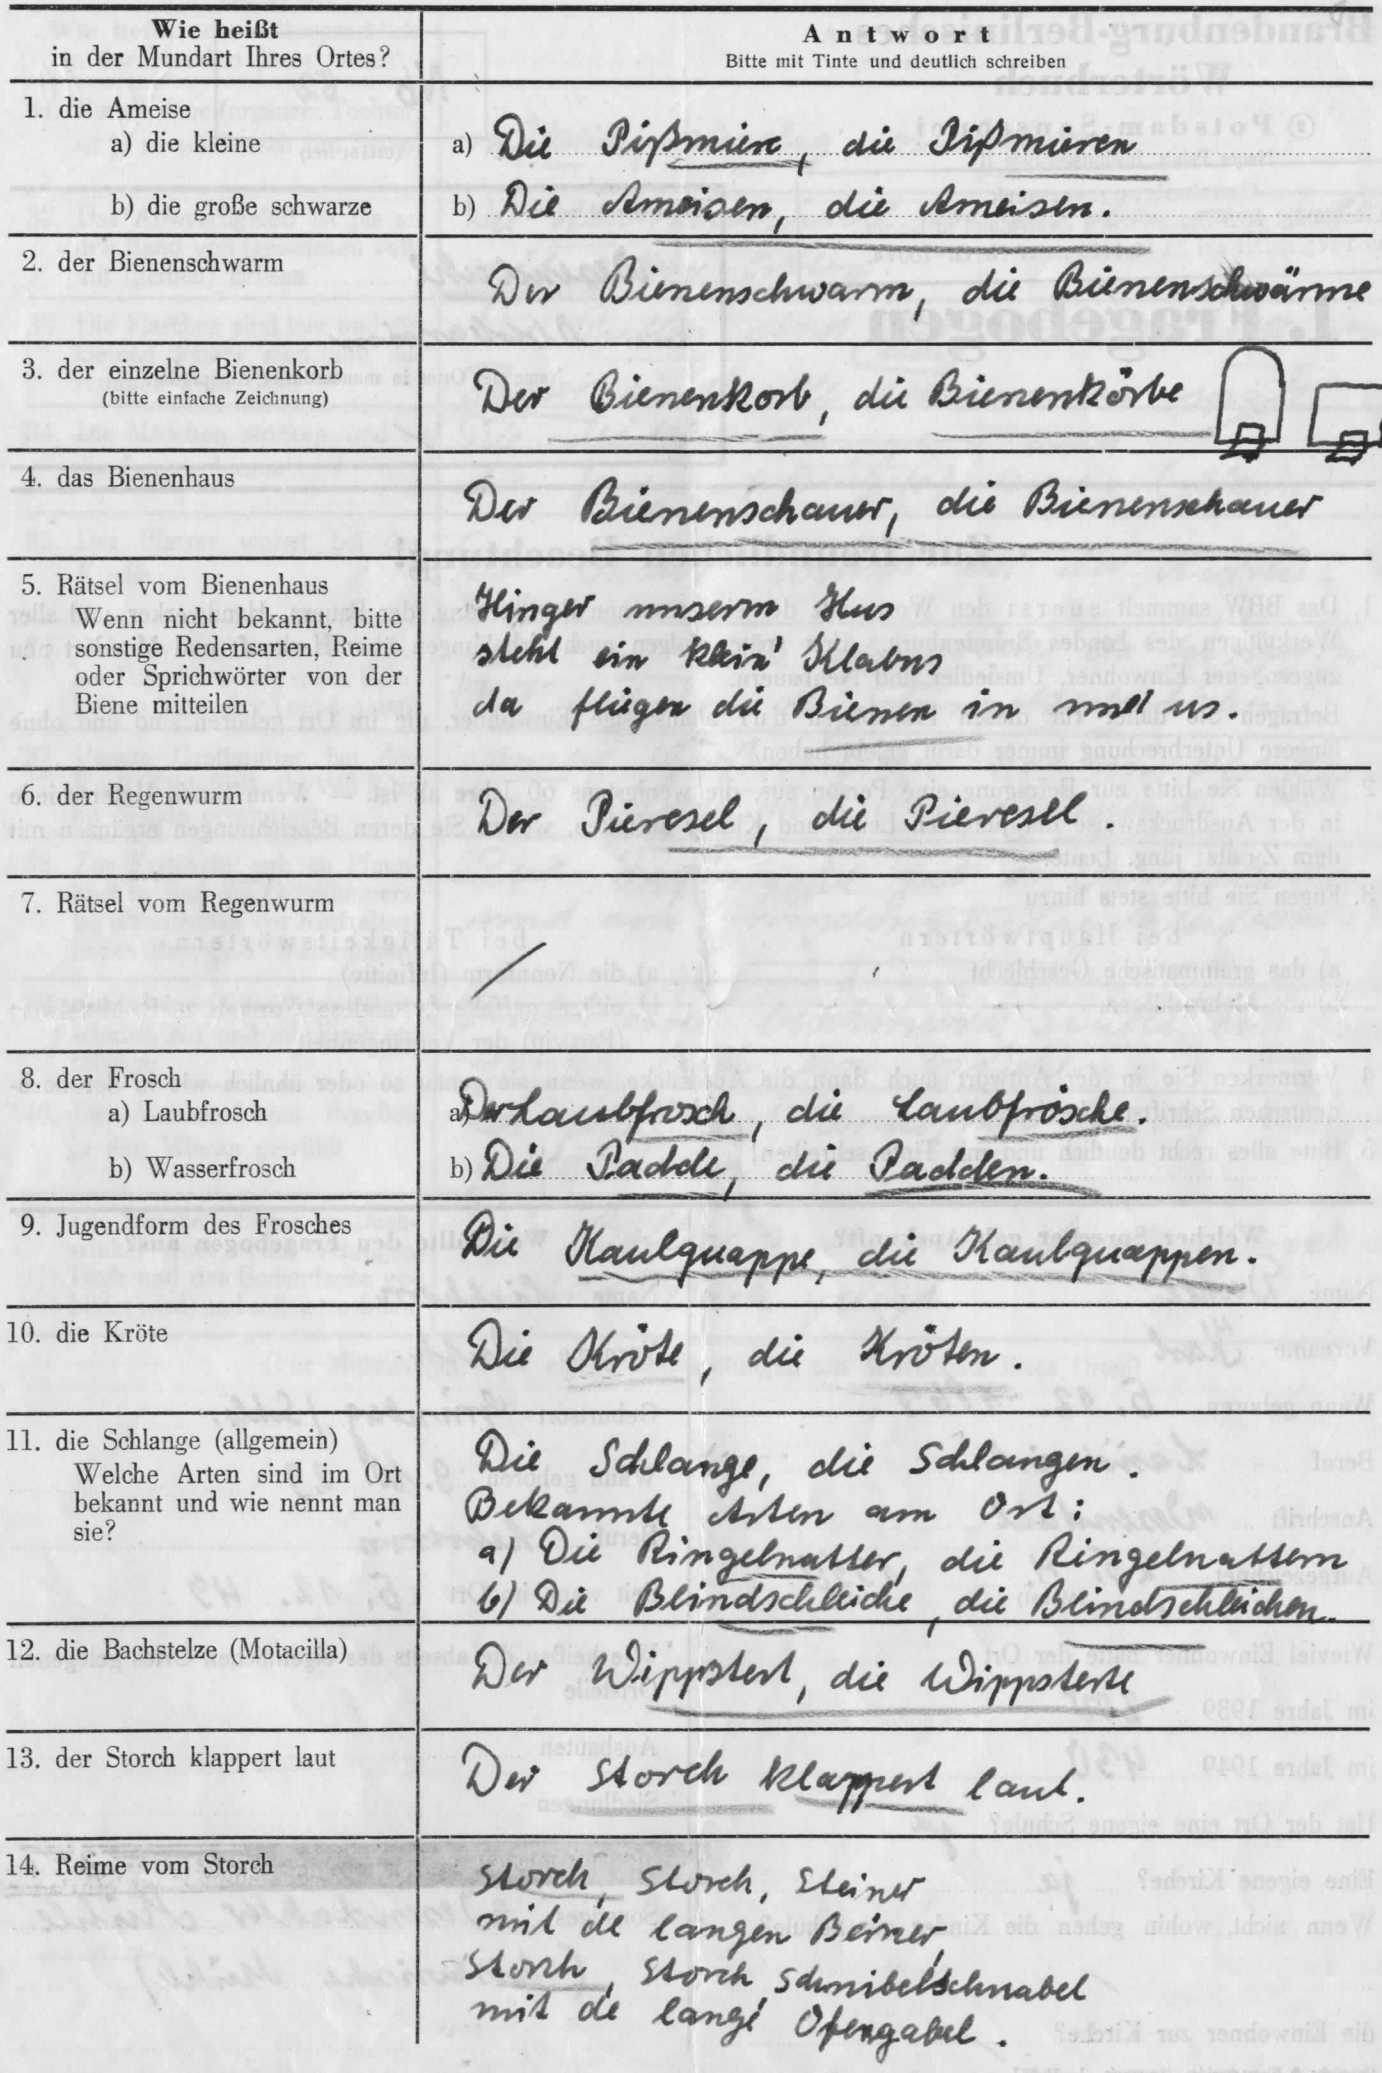 Wie heißt
in der Mundart Ihres Ortes?
Antwort
Bitte mit Tinte und deutlich schreiben
1. die Ameise
a) die kleine
a) Die Pißmiere, die Pißmieren
b) die große schwarze
b) Die Ameisen, die Ameisen.
2. der Bienenschwarm
Der Bienenschwarm, die Bienenschwärme
3. der einzelne Bienenkorb
(bitte einfache Zeichnung)
Der Bienenkorb, die Bienenkörbe
4. das Bienenhaus
Der Bienenschauer, die Bienenschauer
5. Rätsel vom Bienenhaus
Wenn nicht bekannt, bitte
sonstige Redensarten, Reime
oder Sprichwörter von der
Biene mitteilen
Hinger unserm Hus
steht ein klein' Klabus
da fliegen die Bienen in und us.
6. der Regenwurm
Der Pieresel, die Pieresel.
7. Rätsel vom Regenwurm
/
8. der Frosch
a) Laubfrosch
a) Der Laubfrosch, die Laubfrösche.
b) Wasserfrosch
b) Die Padde, die Padden.
9. Jugendform des Frosches
Die Kaulquappe, die Kaulquappen.
10. die Kröte
Die Kröte, die Kröten.
11. die Schlange (allgemein)
Welche Arten sind im Ort
bekannt und wie nennt man
sie?
Die Schlange, die Schlangen.
Bekannte Arten am Ort:
a) Die Ringelnatter, die Ringelnattern
b) Die Blindschleiche, die Blindschleichen.
12. die Bachstelze (Motacilla)
Der Wippstert, die Wippsterte
13. der Storch klappert laut
Der Storch klappert laut.
14. Reime vom Storch
Storch, Storch, Steiner
mit de langen Beiner,
Storch, Storch, Schnibelschnabel
mit de lange Ofengabel.